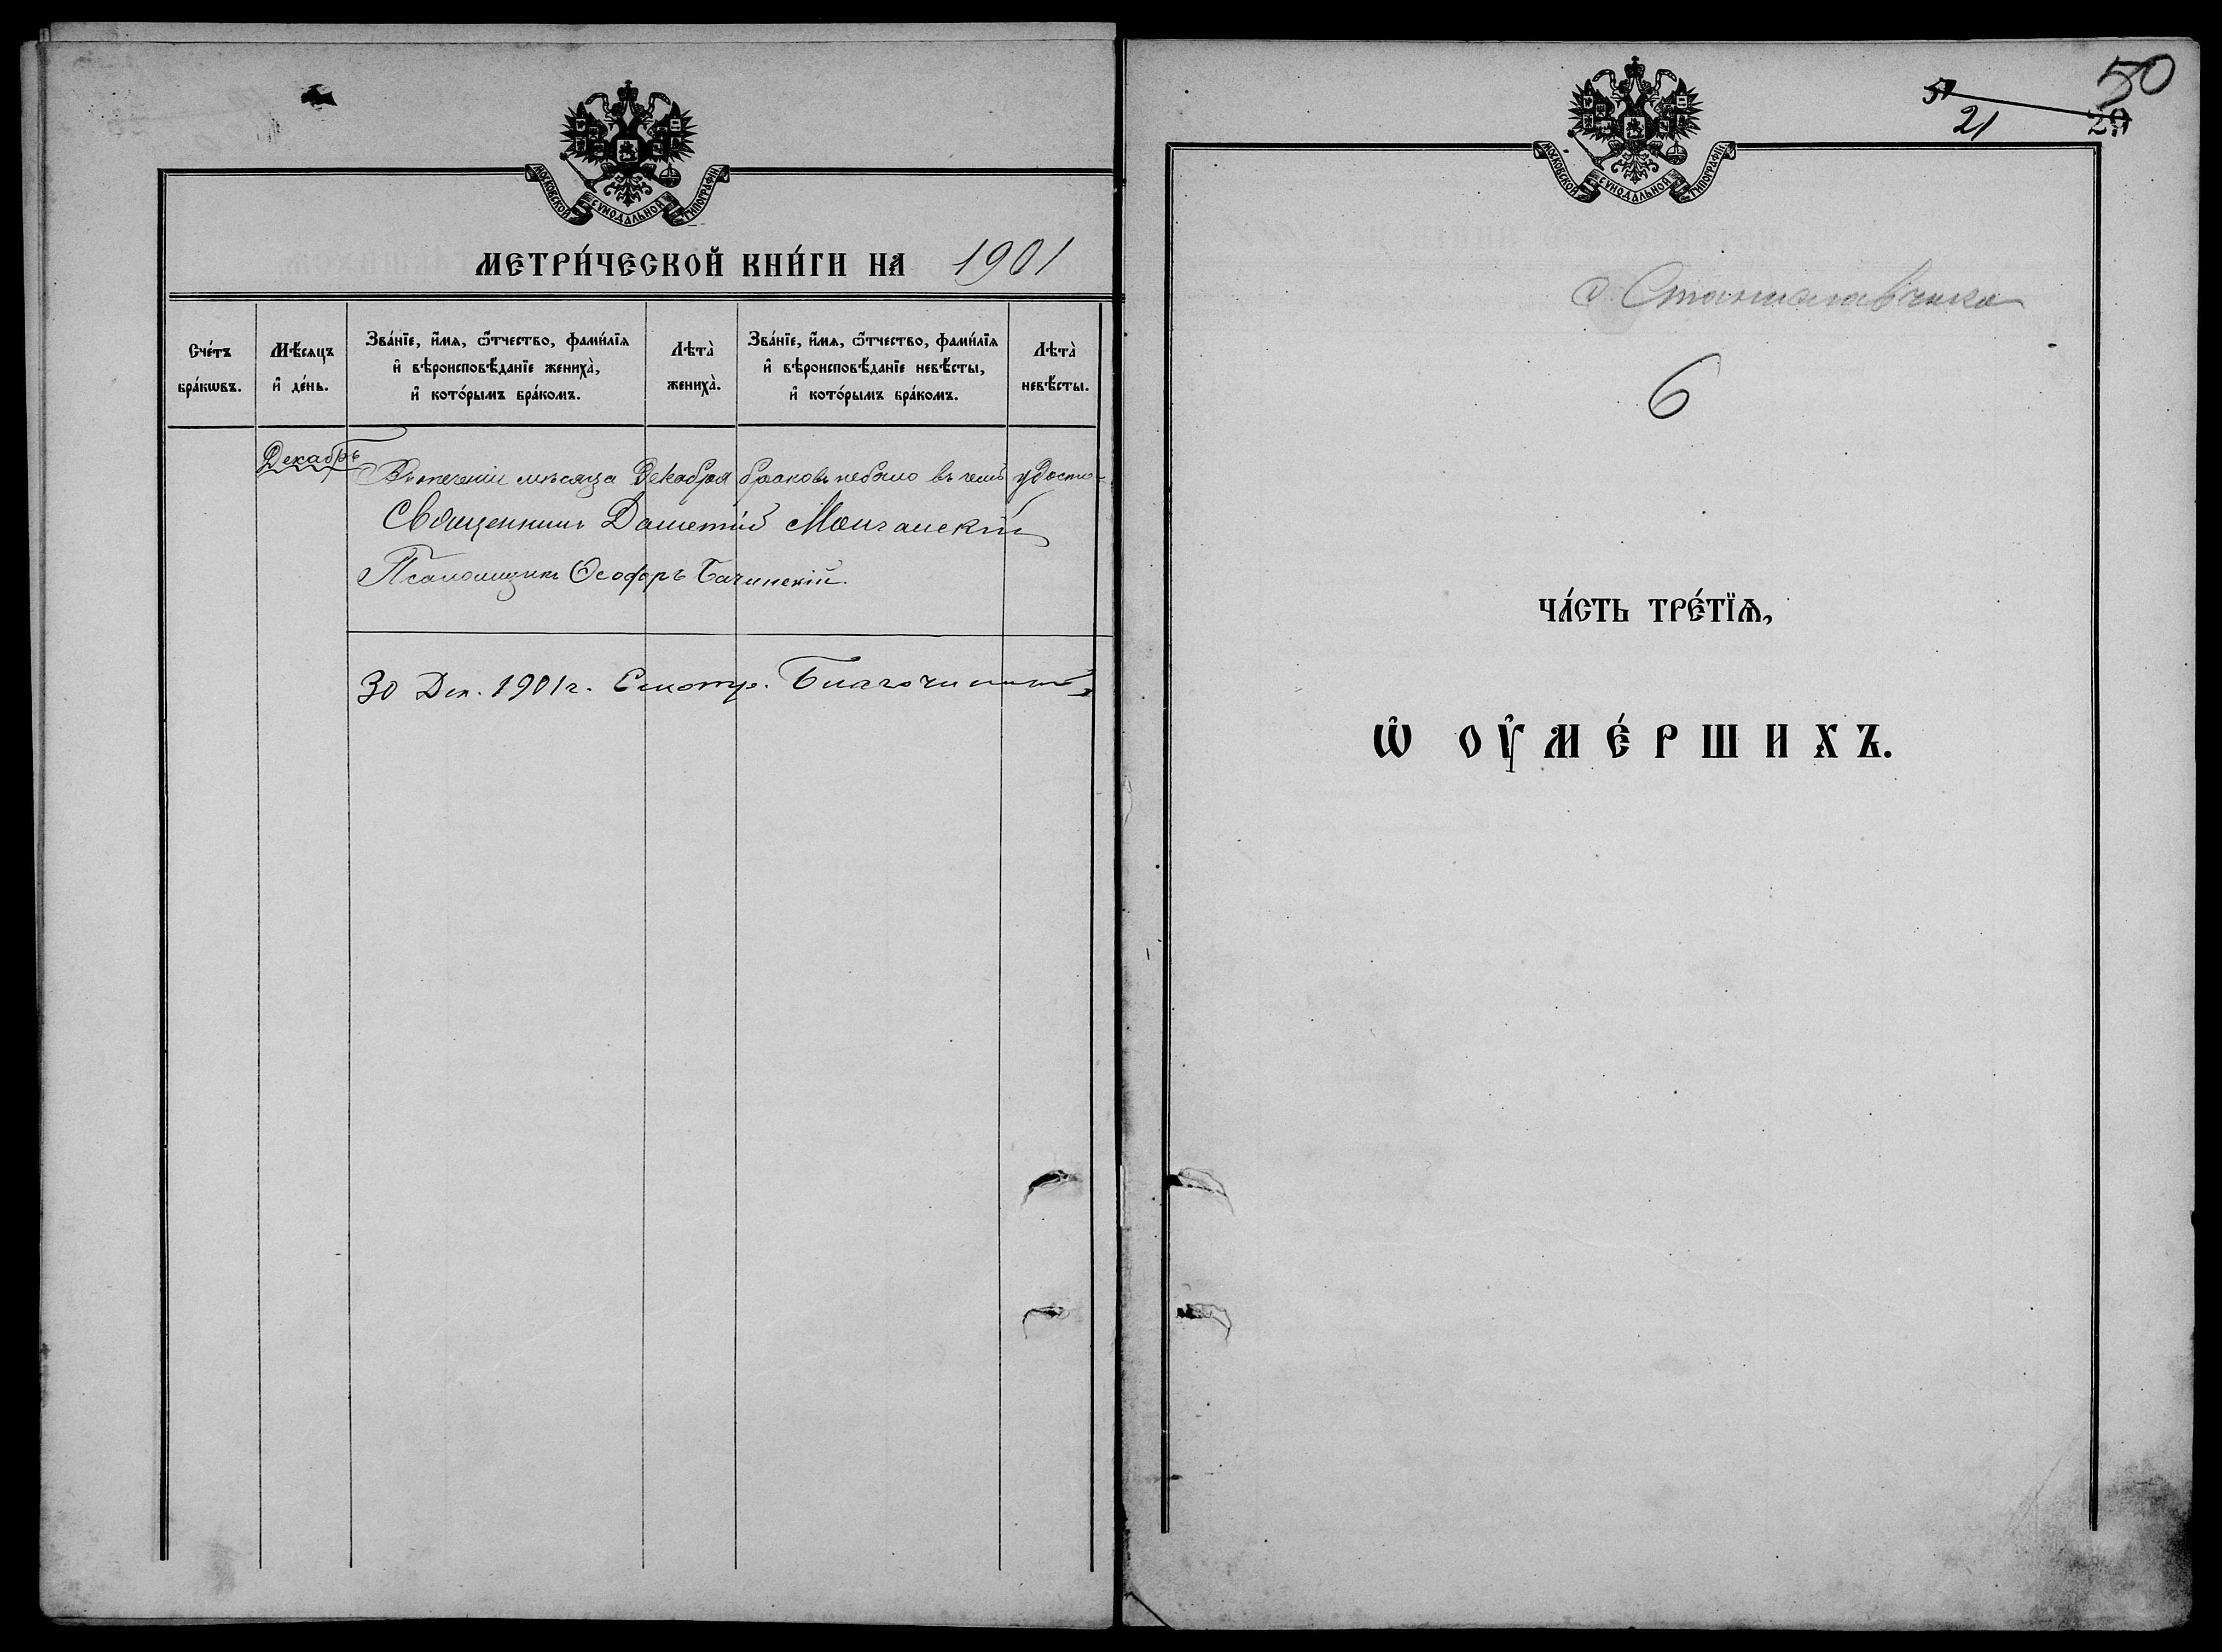 МОСКОВСКОЙ СѴНОДАЛЬНОЙ ТИПОГРАФІИ
МЕТРИ́ЧЕСКОЙ КНИ́ГИ НА 1901
Счéтъ бра́кѡвъ.
Мѣ́сяцъ и҆ де́нь.
Зва́нїе, и҆́мѧ, ѻ҆́тчество, фами́лїѧ
и҆ вѣроисповѣ́данїе жениха̀,
и҆ кото́рымъ бра́комъ.
Лѣта̀ жениха̀.
Зва́нїе, и҆́мѧ, ѻ҆́тчество, фами́лїѧ
и҆ вѣроисповѣ́данїе невѣ́сты,
и҆ кото́рымъ бра́комъ.
Лѣта̀ невѣ́сты.
Декабрь
Въ теченіи мѣсяца Декабря браковъ небыло въ чемъ удосто-
Священникъ
Псаломщикъ Ѳеофоръ Бачинскій.
30 Дек. 1901 г. Смотр. Благочинный
50
21
29
МОСКОВСКОЙ СѴНОДАЛЬНОЙ ТИПОГРАФІИ
с. Станиславчика
6
ЧА́СТЬ ТРЕ́ТЇѦ,
Ѡ҆ ОУ҆МЕ́РШИХЪ.